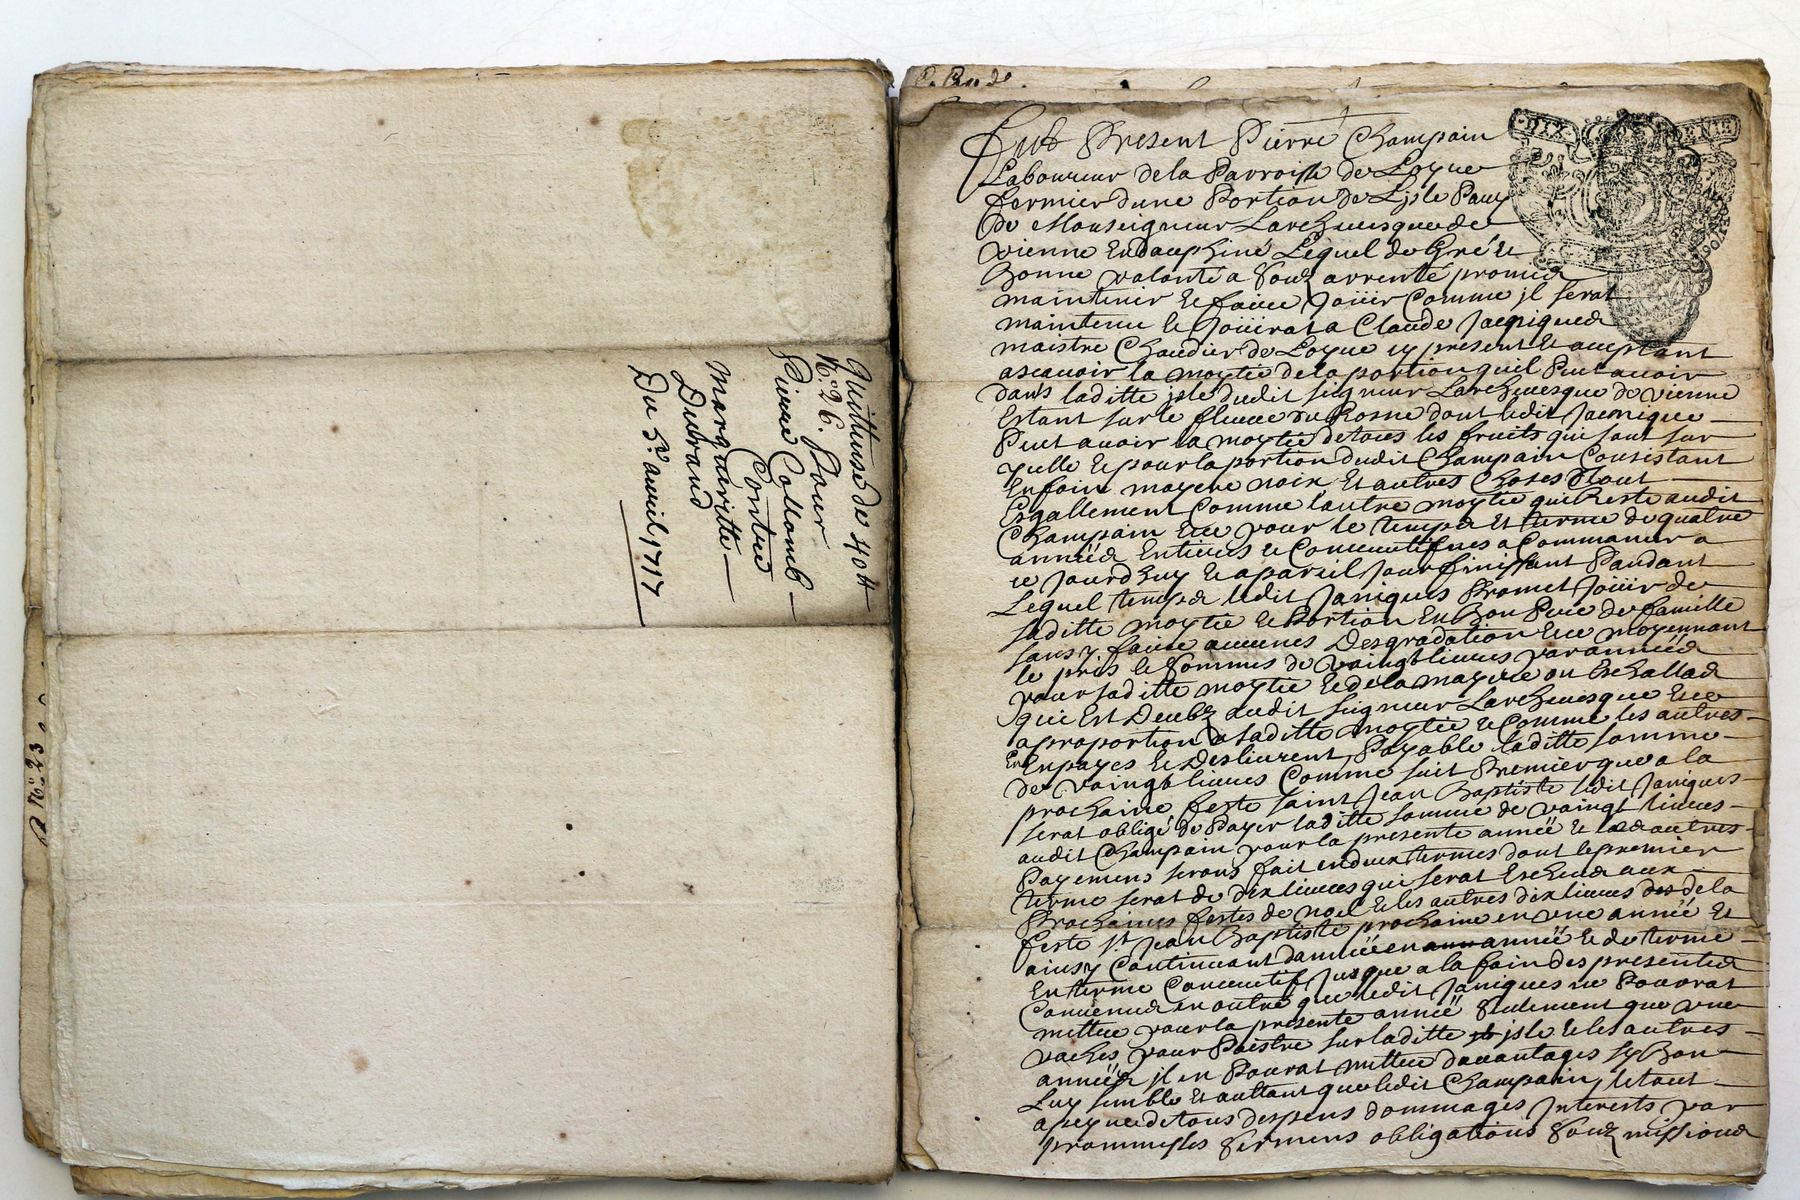 Quittense de 40 ₶
N.° 26. Pour
Pierre Collomb
Contre
Margueritte
Durand
Du 5.e avril 1717
N.° 23
Fut Present Pierre Champain
Laboureur de la Parroisse de Loyue
fermier dune Portion de Lisle Pauy
de Monseigneur Larcheuesque de
vienne En dauphiné Lequel de Gré Et
Bonne volonté a Souz arrenté promis
maintenir Et faire Joüir Comme jl serat
maintenu Et Joüirat a Claude Jacqiques
maistre Chaudier de Loyue jcy present Et aceptant
ascauoir la moytié de la portion quil Peut auoir
dans laditte jsle dudit seigneur Larcheuesque de vienne
Estant sur le fleuue du Rosne dont ledit Janique
Peut auoir la moytié de tous les fruits qui sont sur
ycelle Et pour la portion dudit Champain Consistant
En foin mayere noix Et autres Choses Le tout
Esgallement Comme l'autre moytié qui Reste audit
Champain Et ce pour le temps Et terme de quatre
années Entieres Et Consecutifues a Commancer a
ce Jourdhuy Et a pareil Jour finissant Pandant
Lequel temps ledit Janiques Promet Joüir de
laditte moytié Et Portion En Bon Pere de famille
sans y faire aucunes Desgradation Et ce moyennant
le pris Et somme de vaingt liures par années
pour laditte moytié Et de la mayere ou Eschallas
qui Est Deubz audit seigneur Larcheuesque Et ce
a proportion de laditte moytié Et Comme les autres
En payes Et Desliurent Payable laditte somme
de vaingt liures Comme suit Premier que a la
prochaine feste saint Jean Baptiste ledit Janiques
serat obligé de Payer laditte somme de vaingt liures
audit Champain pour la presente année Et les autres
Payemens serons fait en deux termes dont le premier
terme serat de dix liures qui serat Escheus aux
Prochaines festes de noel Et les autres dix liures de la
feste st Jean Baptiste prochaine en une année Et
ainsy Continuant dannée en année Et de terme
En terme Consecutif Jusque a la fain des presentes
Conuenus en outre que ledit Janiques ne Pourrat
mettre pour la presente année seulement que une
vaches pour Paistre sur laditte jsle Et les autres
années jl en Pourat mettre dauantages sy Bon
Luy semble Et aultant que ledit Champain Le tout
a peyne de tous despens dommages Interests par
prommesses sermens obligations Souz missions